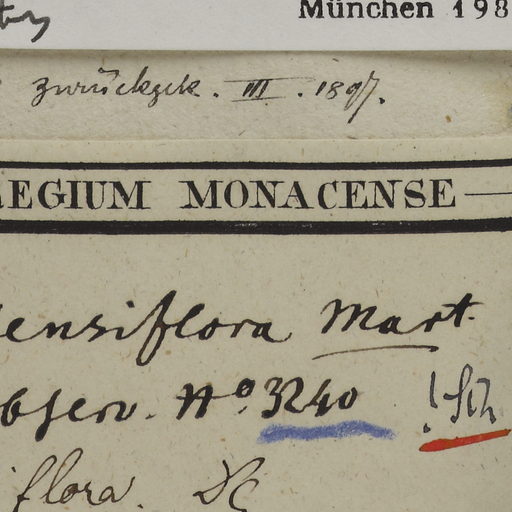 München 198
zurückgek. III. 1897.
EGIUM MONACENSE
ensiflora Mart.
bserv. No. 3240
flora. DC